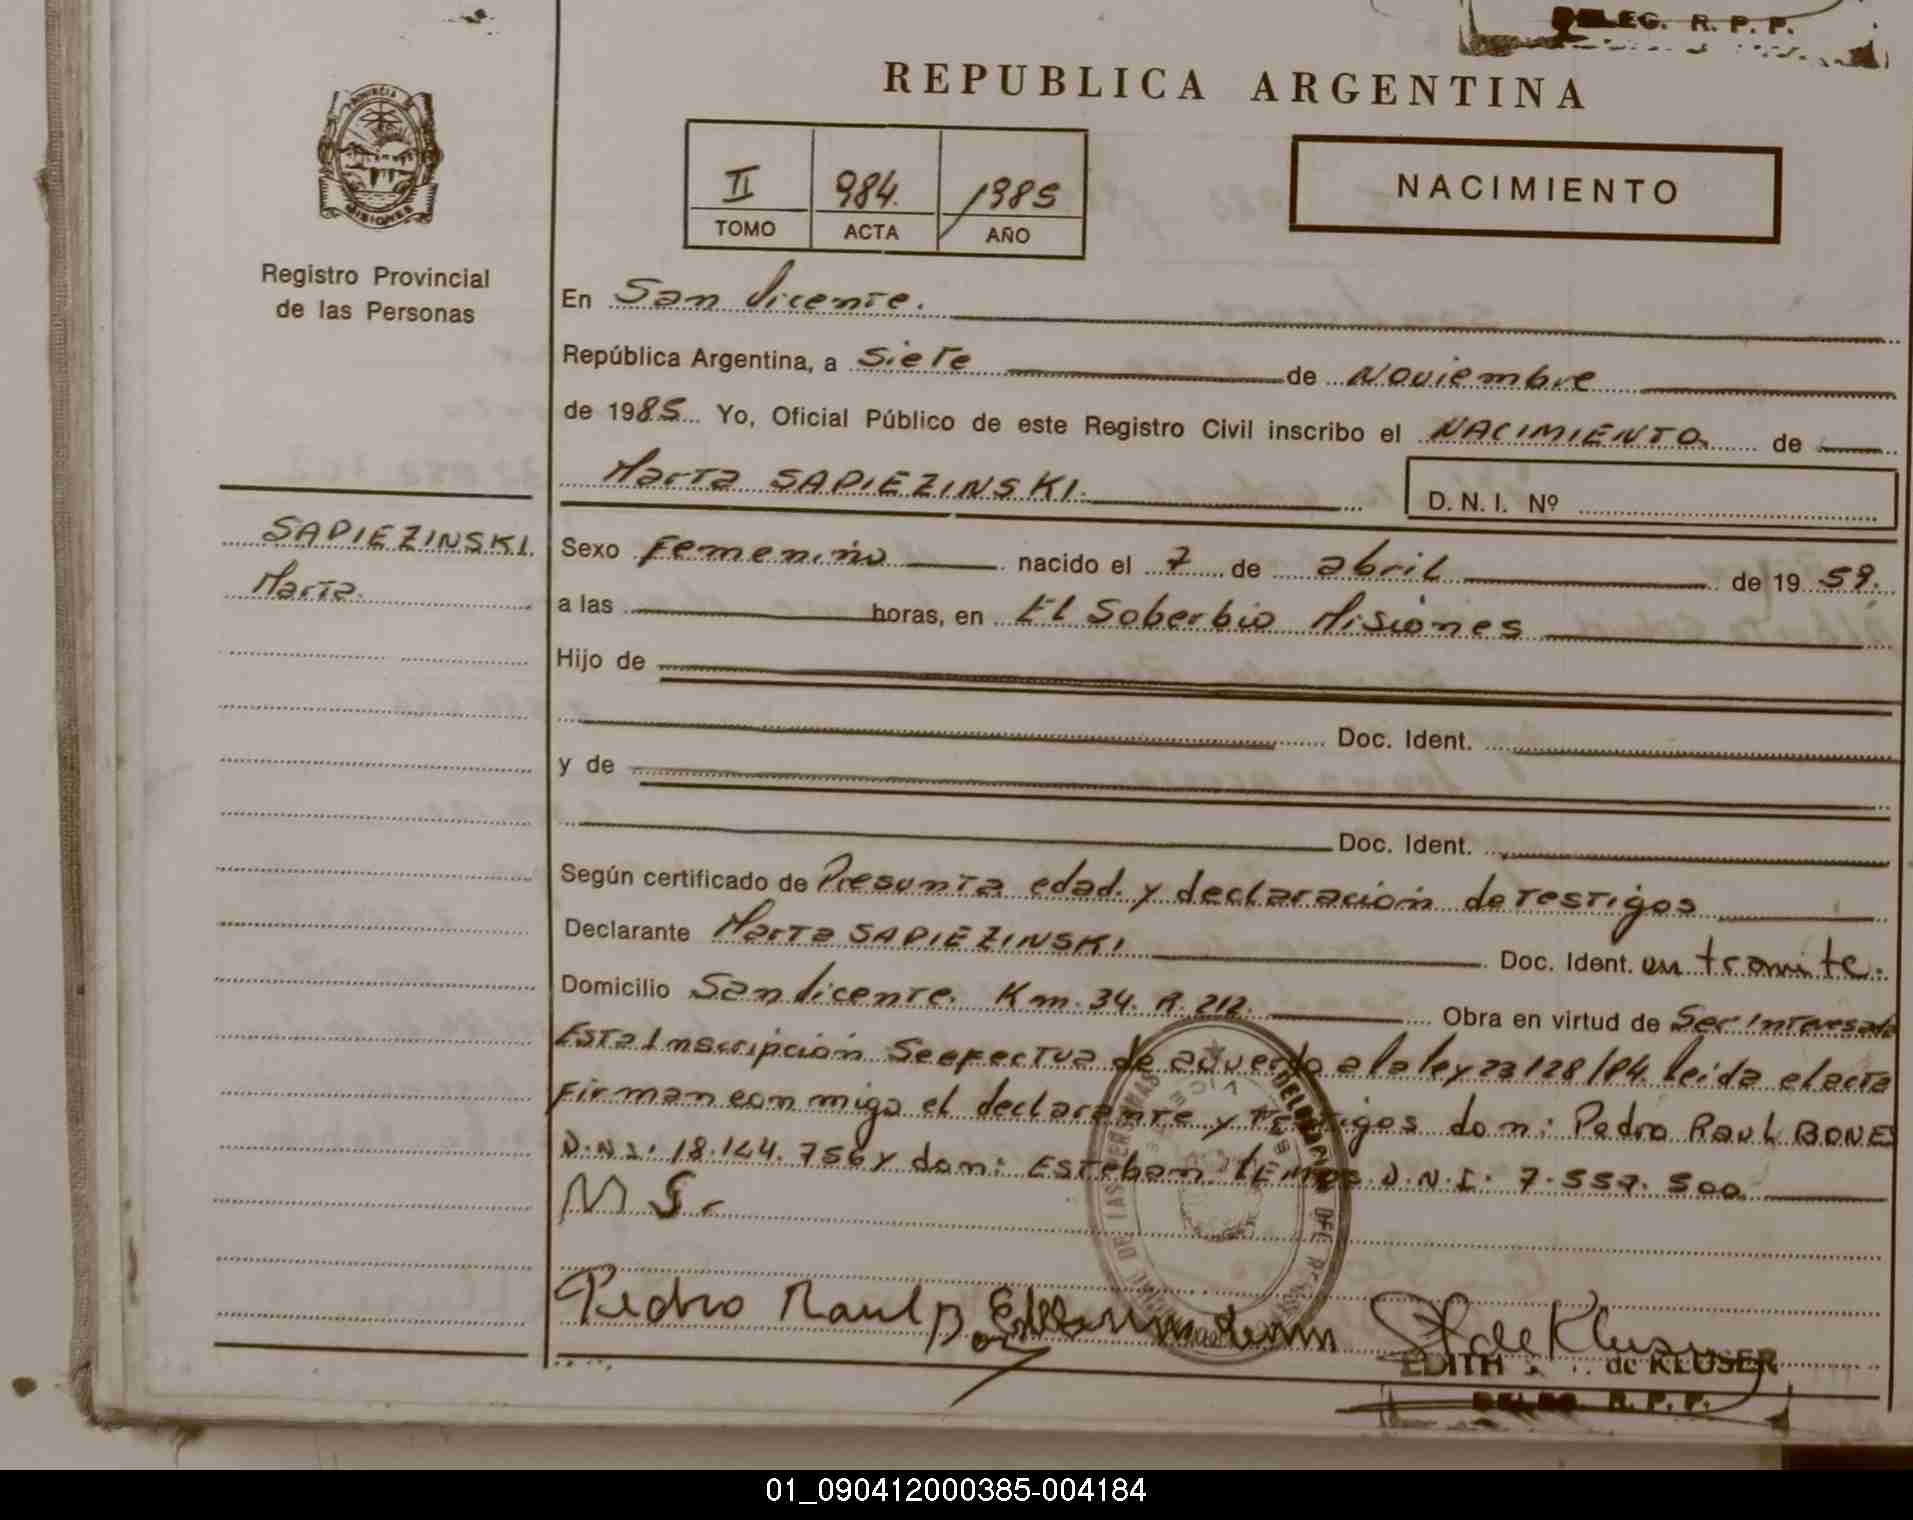 DELEG. R. P. P.
REPUBLICA ARGENTINA
II 984. 1985
TOMO ACTA AÑO
NACIMIENTO
PROVINCIA DE
MISIONES
Registro Provincial
de las Personas
En San Vicente.
República Argentina, a Siete de Noviembre
de 1985 Yo, Oficial Público de este Registro Civil inscribo el NACIMIENTO de
Marta SAPIEZINSKI. D. N. I. Nº
SAPIEZINSKI.
Marta.
Sexo Femenino nacido el 7 de abril de 19 59.
a las horas, en El Soberbio Misiones
Hijo de
Doc. Ident.
y de
Doc. Ident.
Según certificado de Presunta edad. y declaración de Testigos
Declarante Marta SAPIEZINSKI Doc. Ident. en tramite.
Domicilio San Vicente. Km. 34. R. 212. Obra en virtud de Ser Interesada
Esta Inscripción Se efectua de acuerdo a la ley 23128/84. leida el acta
Firman conmigo el declarante y Testigos don: Pedro RAUL BONES
D.N.I. 18.144.756 y don: Esteban D.N.I. 7.557.500
M S.
Pedro Raul B
EDITH de KLUSER
DELEG. R. P. P.
01_090412000385-004184